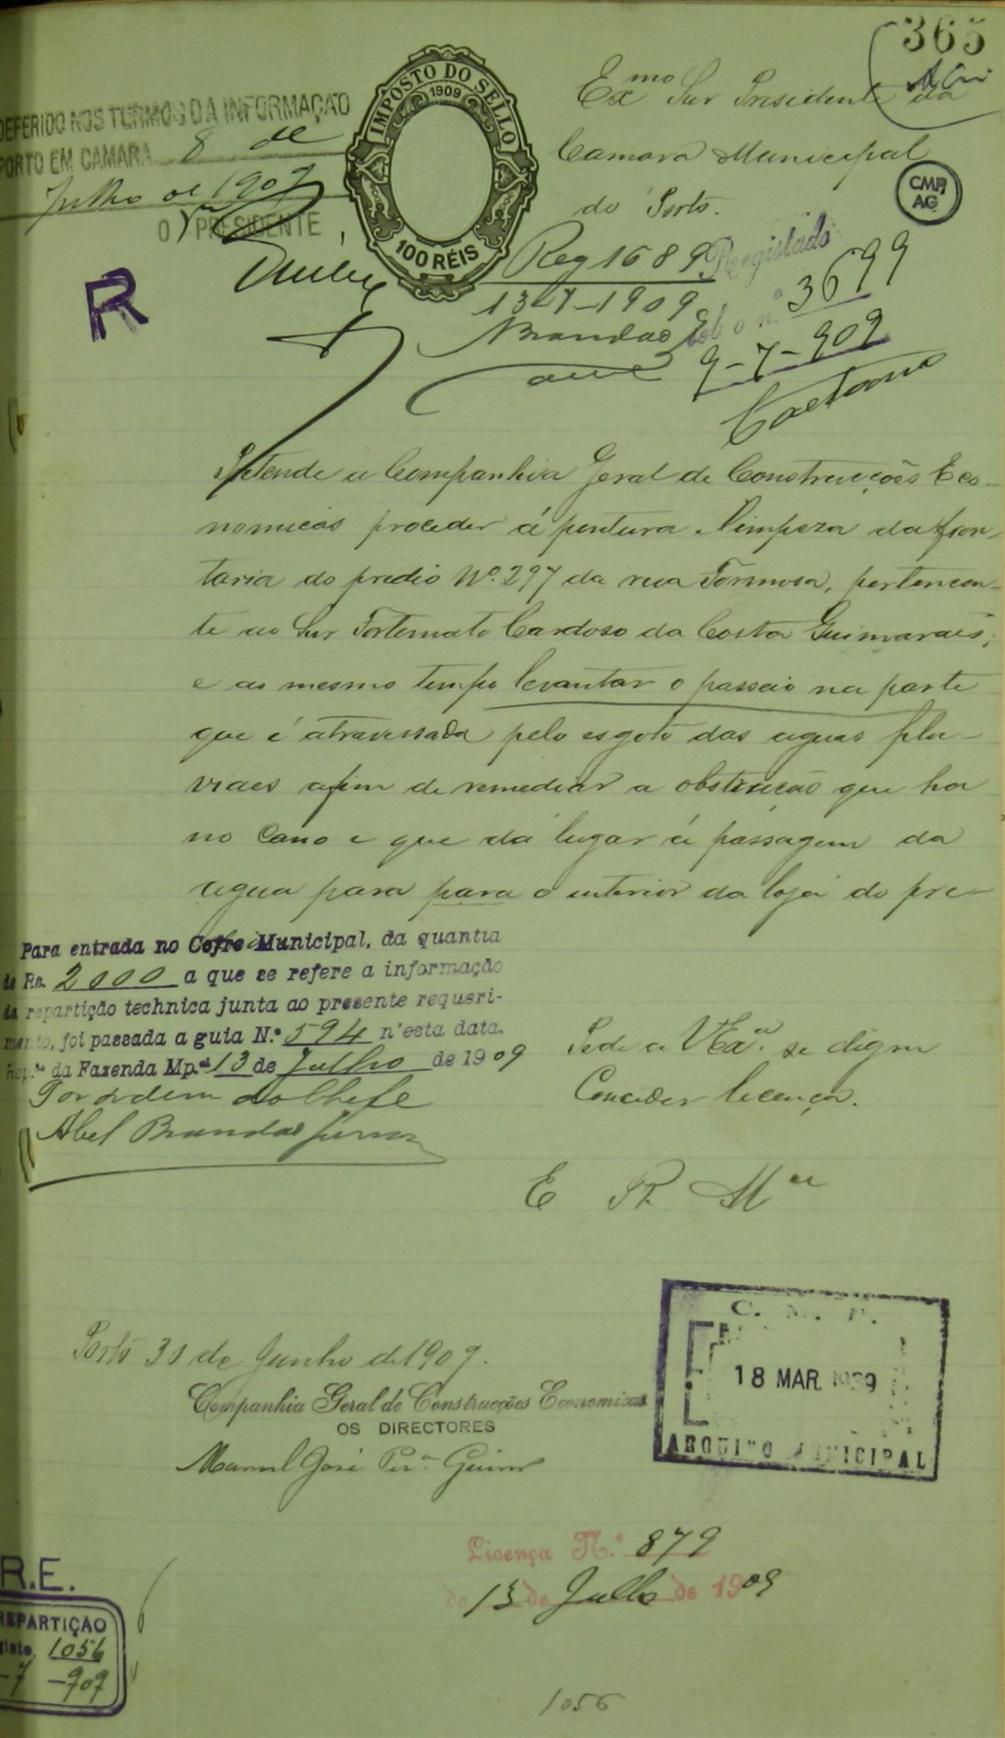 365
Exmo Snr Presidente da
Camara Municipal
do Porto.
DEFERIDO NOS TERMOS DA INFORMAÇÃO
PORTO EM CAMARA 8 de
Julho de 1909
O PRESIDENTE
IMPOSTO DO SELLO
1909
100 RÉIS
CMP
AG
R
Reg 1689
13-7-1909
Brandão
Registado
sob o n.º 3699
9-7-909
Caetano
Pretende a Companhia Geral de Construcções Eco-
nomicas proceder á pintura e limpeza da fron-
taria do predio Nº. 297 da rua Formosa, pertencen-
te ao Snr Fortunato Cardoso da Costa Guimarães,
e ao mesmo tempo levantar o passeio na parte
que é atravessada pelo esgoto das aguas plu-
viaes afim de remediar a obstrução que ha
no cano e que dá lugar á passagem da
agua para para o interior da loja do pre-
Para entrada no Cofre Municipal, da quantia
de Rs. 2000 a que se refere a informação
da repartição technica junta ao presente requeri-
mento, foi passada a guia N.º 594 n'esta data.
Rep.ão da Fazenda Mp.al 13 de Julho de 1909
Por ordem do Chefe
Abel Brandão Junior
Pede a V Exª. se digne
Conceder licença.
E R. Mce
Porto 30 de Junho de 1909.
Companhia Geral de Construcções Economicas
OS DIRECTORES
Manuel José Perª Guim
C. M. P.
18 MAR. 1959
ARQUIVO MUNICIPAL
Licença N.º 879
de 13 de Julho de 1909
R.E.
REPARTIÇÃO
1056
-7-909
1056